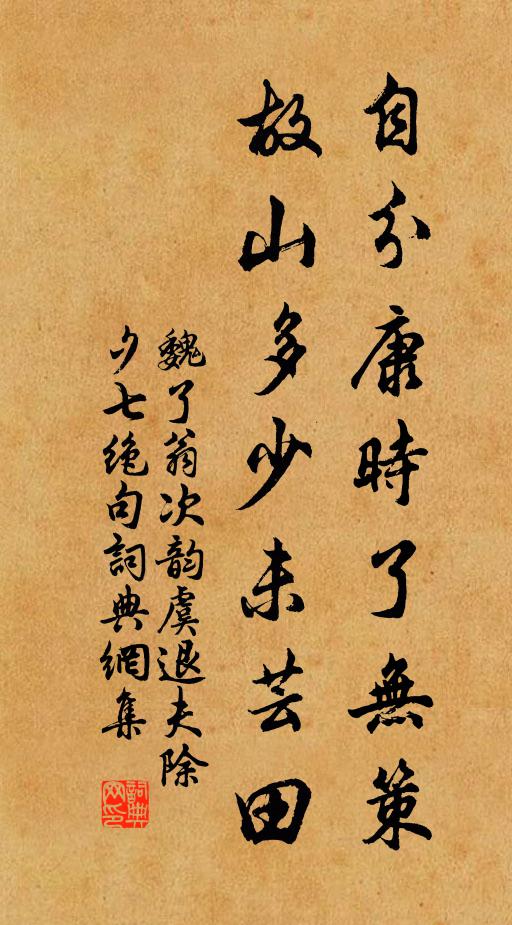 自分康時了無策
故山多少未芸田
魏了翁次韵虞退夫除
夕七绝句詞典網集
詞典網印